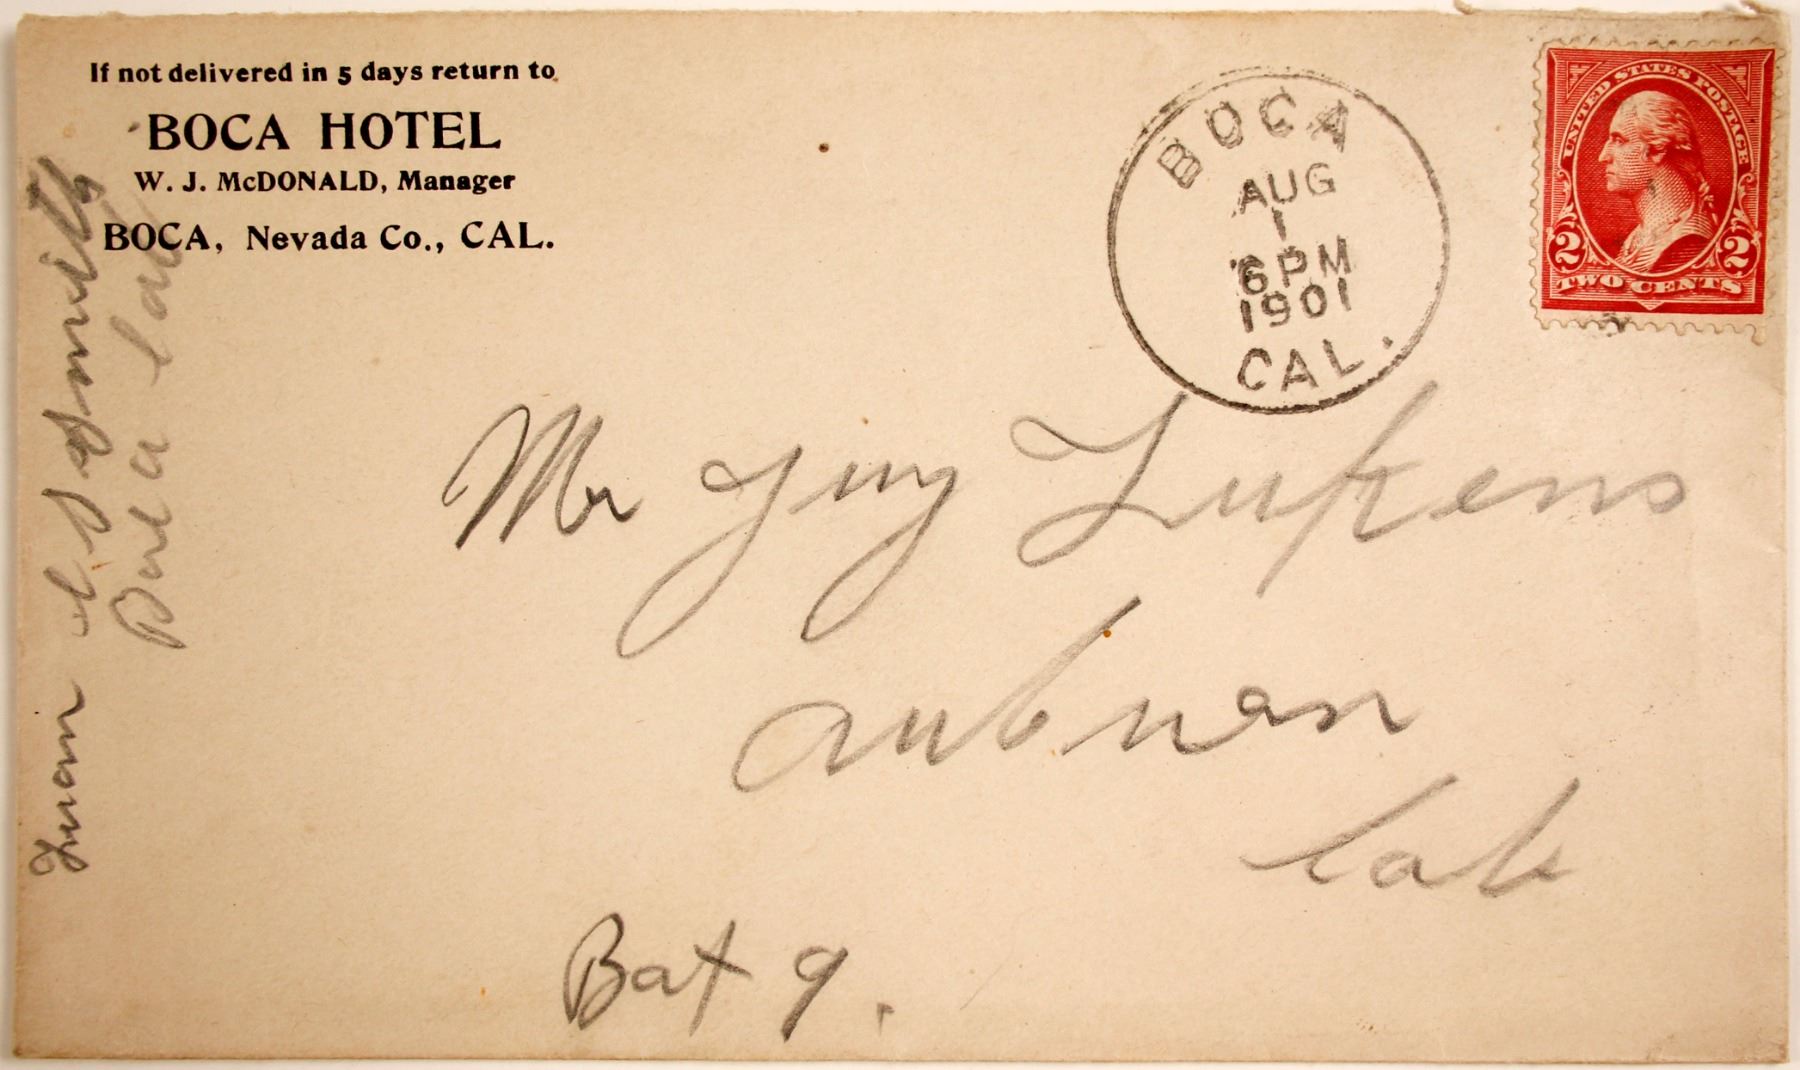 If not delivered in 5 days return to
BOCA HOTEL
W. J. McDONALD, Manager
BOCA, Nevada Co., CAL.
BOCA
AUG
1
6 PM
1901
CAL.
UNITED STATES POSTAGE
2 2
TWO CENTS
Mr Guy Lukens
Auburn
Cal
Box 9.
From
Cal